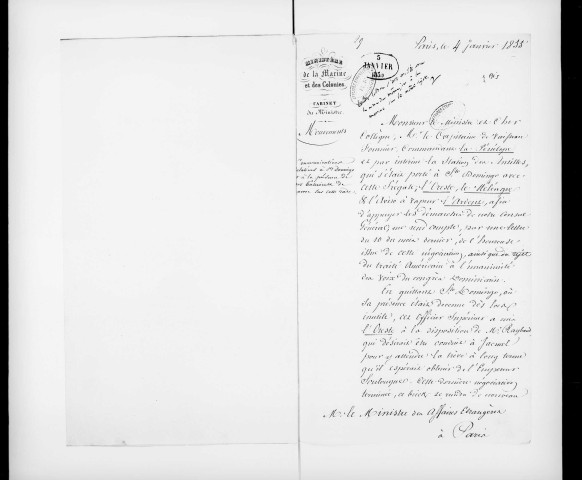 49
Paris, le 4 Janvier 1855
MINISTÈRE
de la Marine
et des Colonies
CABINET
du Ministre
Mouvements
5
JANVIER
1855
Communications
relatives à St Domingo
et à la présence de
Monsieur le Ministre et cher
Collègue, Mr. le Capitaine de Vaisseau
commandant la Pénélope
et par interim la Station des Antilles,
qui s'était porté à Sto Domingo avec
cette frégate, l'Oreste, le Méléagre
& l'aviso à vapeur l'Ardent, afin
d'appuyer les démarches de notre Consul
Général, me rend compte, par une lettre
du 10 du mois dernier, de l'heureuse
issue de cette négociation, ainsi que du rejet
du traité Américain à l'unanimité
des voix du congrès Dominicain.
En quittant Sto Domingo, où
sa présence était devenue dès lors
inutile, cet officier supérieur a mis
l'Oreste à la disposition de Mr. Raybaud
qui désirait être conduit à Jacmel
pour y attendre la trève à long terme
qu'il espérait obtenir de l'Empereur
Soulouque. Cette dernière négociation
terminée, ce brick se rendra de nouveau
Mr. le Ministre des Affaires Etrangères
à Paris